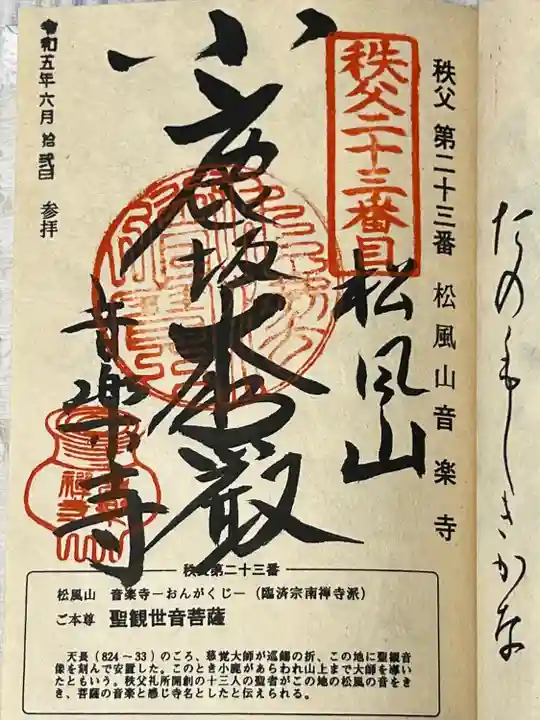 たのもしきかな
秩父 第二十三番 松風山音楽寺
秩父二十三番目
松風山
小鹿坂
音楽寺
令和五年六月 拾弐日 参拝
秩父第二十三番
松風山 音楽寺－おんがくじ－(臨済宗南禅寺派)
ご本尊 聖観世音菩薩
天長(824～33)のころ、慈覚大師が巡錫の折、この地に聖観音
像を刻んで安置した。このとき小鹿があらわれ山上まで大師を導い
たともいう。秩父札所開創の十三人の聖者がこの地の松風の音をき
き、菩薩の音楽と感じ寺名としたと伝えられる。